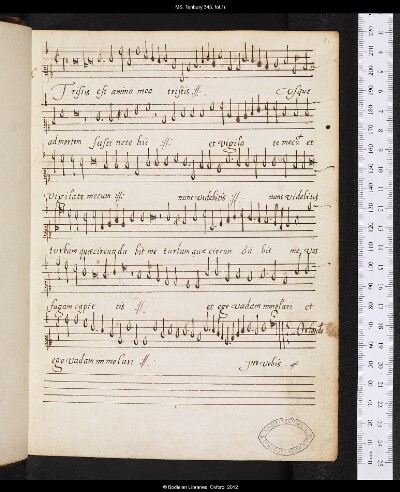 MS. Tenbury 243, fol.1r
Tristis est anima mea tristis :||: Usque
ad mortem susti nete hic :||: et vigila te mecū et
Vigilate mecum :||: nunc videbitis :||: nunc videbitis
turbam quæ circunda bit me turbam quæ circun da bit me, vos
fugam capie tis :||: et ego vadam immolari et
ego vadam immolari :||: pro vobis
© Bodleian Libraries, Oxford, 2012